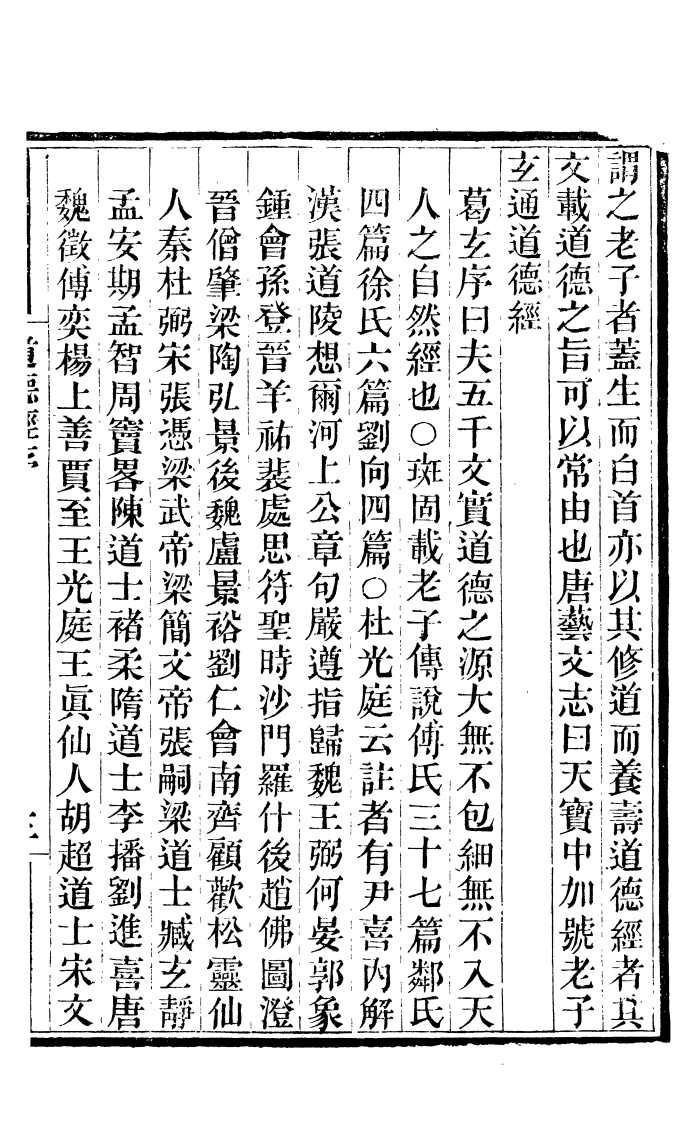 謂之老子者蓋生而白首亦以其修道而養壽道德經者其
文載道德之旨可以常由也唐藝文志曰天寶中加號老子
玄通道德經
葛玄序曰夫五千文實道德之源大無不包細無不入天
人之自然經也○班固載老子傳說傅氏三十七篇鄰氏
四篇徐氏六篇劉向四篇○杜光庭云註者有尹喜內解
漢張道陵想爾河上公章句嚴遵指歸魏王弼何晏郭象
鍾會孫登晉羊祜裴處思苻聖時沙門羅什後趙佛圖澄
晉僧肇梁陶弘景後魏盧景裕劉仁會南齊顧歡松靈仙
人秦杜弼宋張憑梁武帝梁簡文帝張嗣梁道士臧玄靜
孟安期孟智周竇畧陳道士褚柔隋道士李播劉進喜唐
魏徵傅奕楊上善賈至王光庭王眞仙人胡超道士宋文
道德經序